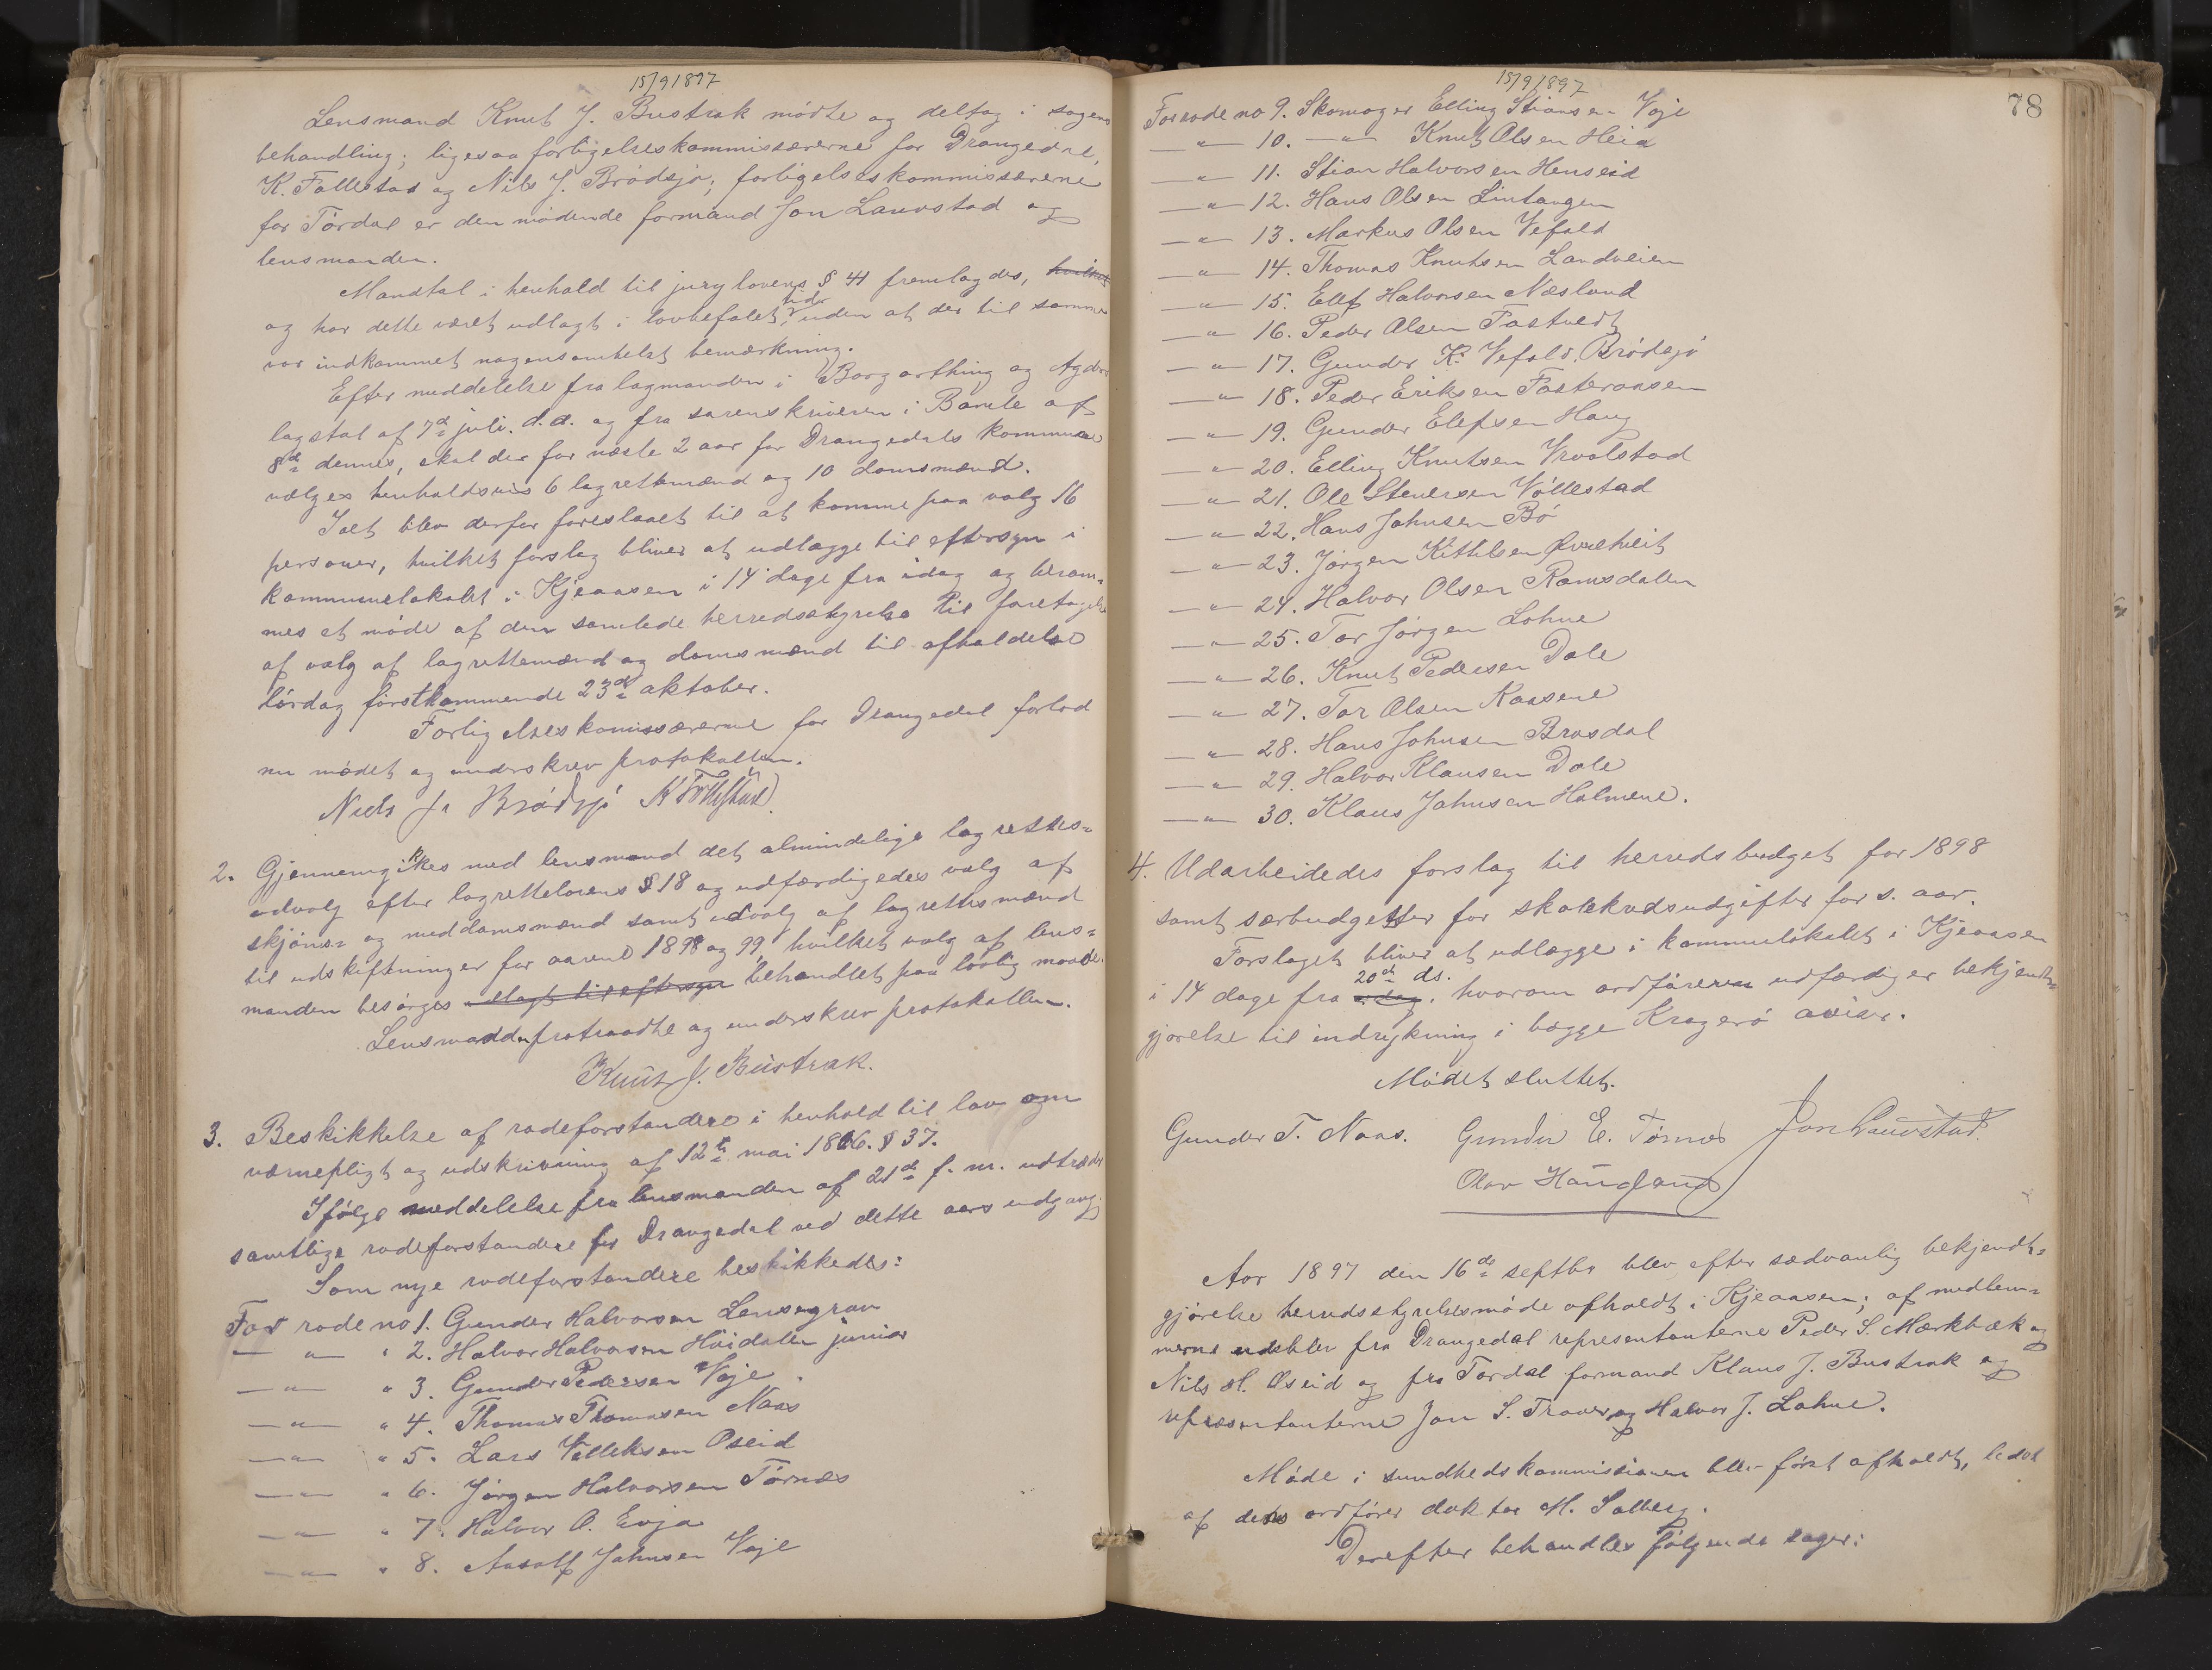 15/9 1897
Lensmand Knut J. Bustrak mødte og deltog i sagens
behandling; ligesaa forligelseskommissærerne for Drangedal,
K. Follestad og Nils J. Brødsjø; forligelseskommissærerne
for Tørdal er den mødende formand Jon Lauvstad og
lensmanden.
Mandtal i henhold til jurylovens § 41 fremlagdes,
og har dette været udlagt i lovbefalet tider, uden at der til samme
var indkommet nogensomhelst bemærkning.
Efter meddelelse fra lagmanden i Borgarthing og Agder
lagstol af 7de juli d. a. og fra sorenskriveren i Bamle af
8de dennes, skal der for næste 2 aar for Drangedals kommune
vælges henholdsvis 6 lagrettemænd og 10 domsmænd.
Ialt blev derfor foreslaaet til at komme paa valg 16
personer, hvilket forslag bliver at udlægge til eftersyn i
kommunelokalet i Kjeaasen i 14 dage fra idag og beram=
mes et møde af den samlede herredsstyrelse til foretagelse
af valg af lagrettemænd og domsmænd til afholdelse
lørdag førstkommende 23de oktober.
Forligelseskomissærerne for Drangedal forlod
nu mødet og underskrev protokollen.
Niels Js Brødsjø K Follestad
2. Gjennemgikkes med lensmand det almindelige lagrettes=
udvalg efter lagrettelovens § 18 og udfærdigedes valg af
skjøns= og meddomsmænd samt udvalg af lagrettesmænd
til udskiftninger for aarene 1898 og 99, hvilket valg af lens=
manden besørges udlagt til eftersyn behandlet paa lovlig maade.
Lensmanden fratraadte og underskrev protokollen.
Knut J. Bustrak.
3. Beskikkelse af rodeforstandere i henhold til lov om
værnepligt og udskrivning af 12te mai 1866. § 37.
Ifølge meddelelse fra lensmanden af 21de f. m. udtræder
samtlige rodeforstandere for Drangedal ved dette aars udgang.
Som nye rodeforstandere beskikkedes:
For rode no 1. Gunder Halvorsen Lensegrav
— " — " 2. Halvor Halvorsen Høidalen junior
— " — " 3. Gunder Pedersen Voje.
— " — " 4. Thomas Thomasen Naas
— " — " 5. Lars Velleksen Oseid
— " — " 6. Jørgen Halvorsen Tørnes
— " — " 7. Halvor O. Evja
— " — " 8. Aasolf Johnsen Voje
15/9 1897
78
For rode no 9. Skomager Elling Stiansen Voje
— " — 10. — " — Knut Olsen Heia
— " — 11. Stian Halvorsen Henseid
— " — 12. Hans Olsen Lintangen
— " — 13. Markus Olsen Vefald
— " — 14. Thomas Knutsen Landveien
— " — 15. Ellef Halvorsen Næslund
— " — 16. Peder Olsen Tostvedt
— " — 17. Gunder K. Vefald, Brødsjø
— " — 18. Peder Eriksen Fosteraasen
— " — 19. Gunder Elefsen Haug
— " — 20. Elling Knutsen Vraalstad
— " — 21. Ole Stenersen Vøllestad
— " — 22. Hans Johnsen Bø
— " — 23. Jørgen Kittilsen
— " — 24. Halvor Olsen Ramsdalen
— " — 25. Tor Jørgen Lohne
— " — 26. Knut Pedersen Dale
— " — 27. Tor Olsen Kaasene
— " — 28. Hans Johnsen Brosdal
— " — 29. Halvor Klausen Dale
— " — 30. Klaus Johnsen Holmene.
4. Udarbeidedes forslag til herredsbudget for 1898
samt særbudgetter for skolekredsudgifter for s. aar.
Forslaget bliver at udlægge i kommunelokalet i Kjeaasen
i 14 dage fra idag 20de ds., hvorom ordføreren udfærdiger bekjendt=
gjørelse til indrykning i begge Kragerø aviser.
Mødet sluttet.
Gunder T. Naas. Gunder E. Tørnes Jon Lauvstad.
Olav Haugland
Aar 1897 den 16de septbr blev efter sædvanlig bekjendt=
gjørelse herredsstyrelsesmøde afholdt i Kjeaasen; af medlem=
merne udeblev fra Drangedal representanterne Peder S. Mærkbæk og
Nils H. Oseid og fra Tørdal formand Klaus J. Bustrak og
representanterne Jon S. Traaer og Halvor J. Lohne.
Møde i sundhedskommissionen blev først afholdt, ledet
af dens ordfører doktor M. Solberg.
Derefter behandles følgende sager: